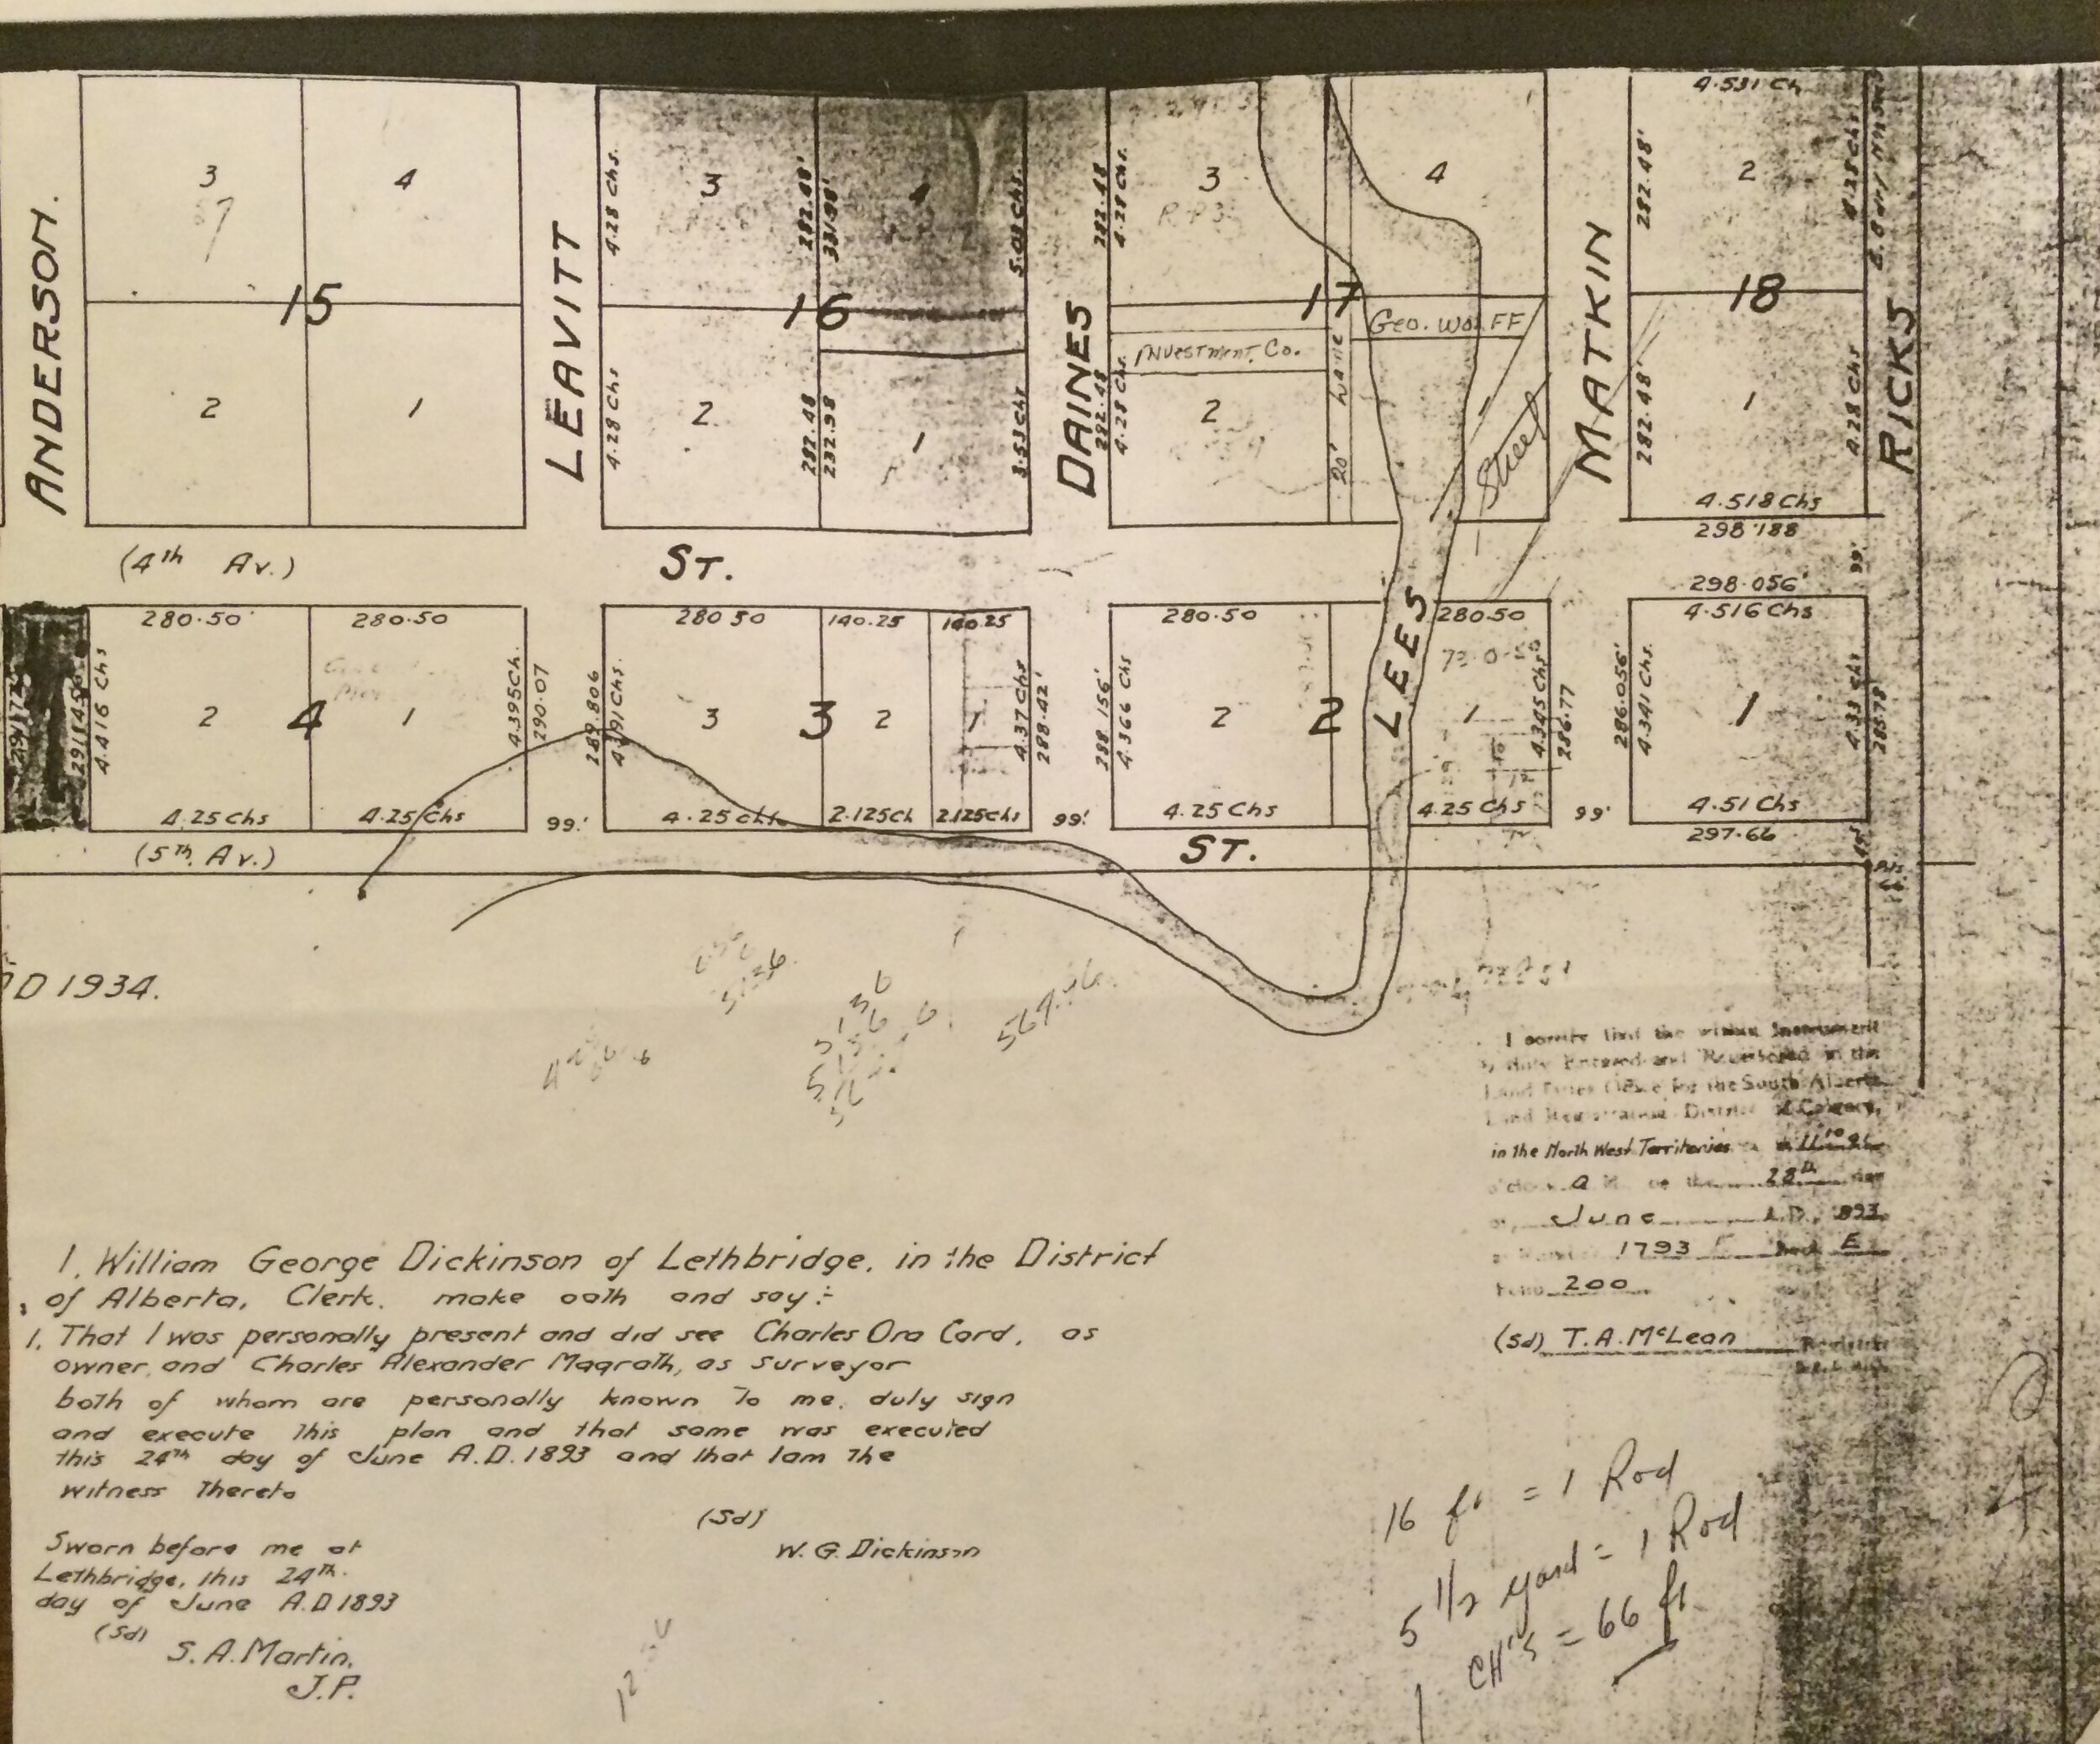 4.531 Ch
ANDERSON.
3
4
15
2
1
LEAVITT
4.28 Chs.
3
282.48'
331.98'
4
5.03 Chs.
16
4.28 Chs
2
282.48
232.98
1
3.53 Chs
DAINES
282.48
4.28 Chs.
3
4
17
Geo. WOLFF
INVestment. Co.
282.48
4.28 Chs.
2
20' Lane
Street
MATKIN
282.48'
2
4.28 Chs
18
282.48'
1
4.28 Chs
RICKS
4.518 Chs
298.188
(4th Av.)
ST.
99'
298.056'
4.516 Chs
280.50'
280.50
280.50
140.25
140.25
280.50
280.50
4.416 Chs
2
4
1
4.395 Ch.
290.07
289.806
4.391 Chs.
3
3
2
1
4.37 Chs
288.42'
288.156'
4.366 Chs
2
2
LEES
1
4.345 Chs
286.77
286.056'
4.341 Chs.
1
4.33 Chs
285.78'
4.25 Chs
4.25 Chs
99'
4.25 Chs
2.125 Ch
2.125 Chs
99'
4.25 Chs
4.25 Chs
99'
4.51 Chs
297.66
(5th Av.)
ST.
D 1934.
5136
564.46
I certify that the within Instrument
is duly Entered and Registered in the
Land Titles Office for the South Alberta
Land Registration District of Calgary,
in the North West Territories
o'clock a M. on the 28th day
of June A.D. 1893
1793 Book E
Folio 200
(Sd) T. A. McLean
I, William George Dickinson of Lethbridge, in the District
of Alberta, Clerk, make oath and say:-
1. That I was personally present and did see Charles Ora Card, as
owner, and Charles Alexander Magrath, as surveyor
both of whom are personally known to me, duly sign
and execute this plan and that same was executed
this 24th day of June A.D. 1893 and that I am the
witness thereto
(Sd)
W. G. Dickinson
Sworn before me at
Lethbridge, this 24th
day of June A.D 1893
(Sd)
S. A. Martin.
J.P.
16 ft = 1 Rod
5 1/2 yard = 1 Rod
1 CH'S = 66 ft